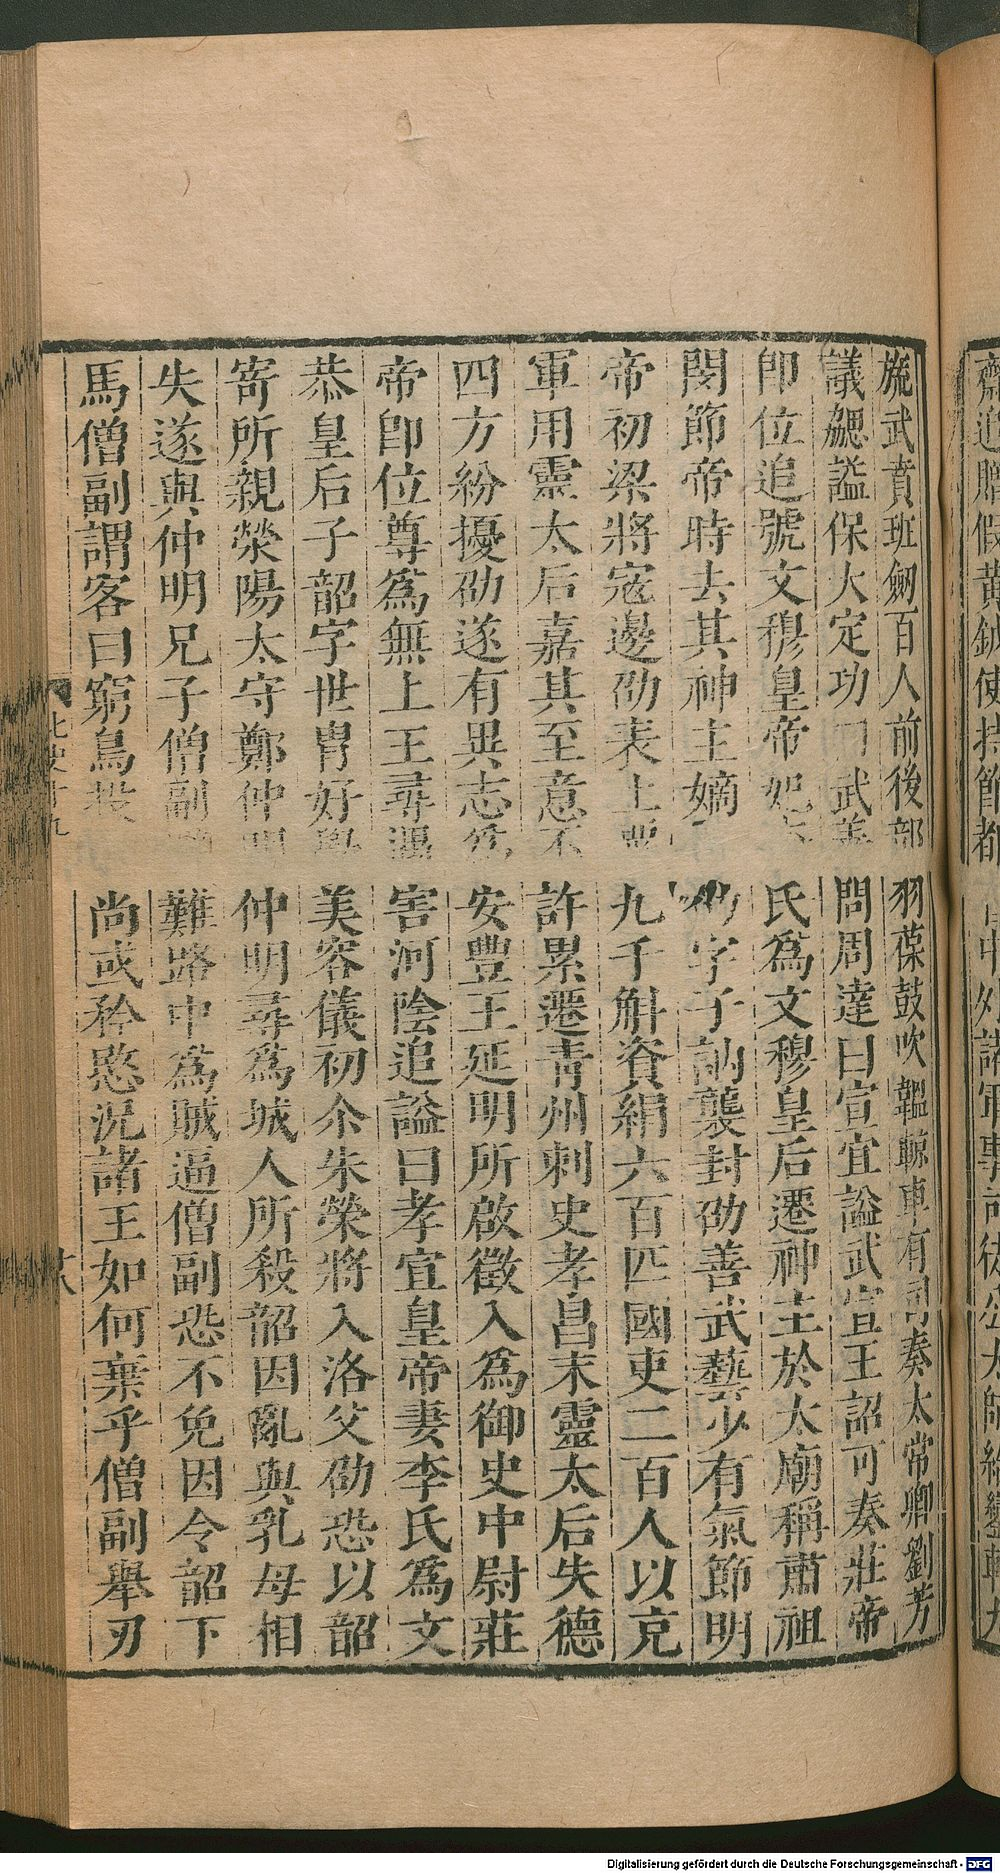 旒武賁班劒百人前後部羽葆鼓吹轀輬車有司奏太常卿劉芳
議勰謚保大定功曰武善問周達曰宣宜謚武宣王詔可奏莊帝
卽位追號文穆皇帝妃李氏爲文穆皇后遷神主於太廟稱肅祖
閔節帝時去其神主嫡 字子訥襲封劭善武藝少有氣節明
帝初梁將寇邊劭表上粟九千斛資絹六百匹國吏二百人以充
軍用靈太后嘉其至意不許累遷靑州刺史孝昌末靈太后失德
四方紛擾劭遂有異志爲安豐王延明所啟徵入爲御史中尉莊
帝卽位尊爲無上王尋遇害河陰追謚曰孝宣皇帝妻李氏爲文
恭皇后子韶字世胄好學美容儀初尒朱榮將入洛父劭恐以韶
寄所親滎陽太守鄭仲明仲明尋爲城人所殺韶因亂與乳母相
失遂與仲明兄子僧副 難路中爲賊逼僧副恐不免因令韶下
馬僧副謂客曰窮鳥投 尚或矜愍況諸王如何棄乎僧副舉刃
北史十九
十八
齋追贈假黄鉞使持節都 中外諸軍事司徒公太師給鑾輅九
Digitalisierung gefördert durch die Deutsche Forschungsgemeinschaft - DFG